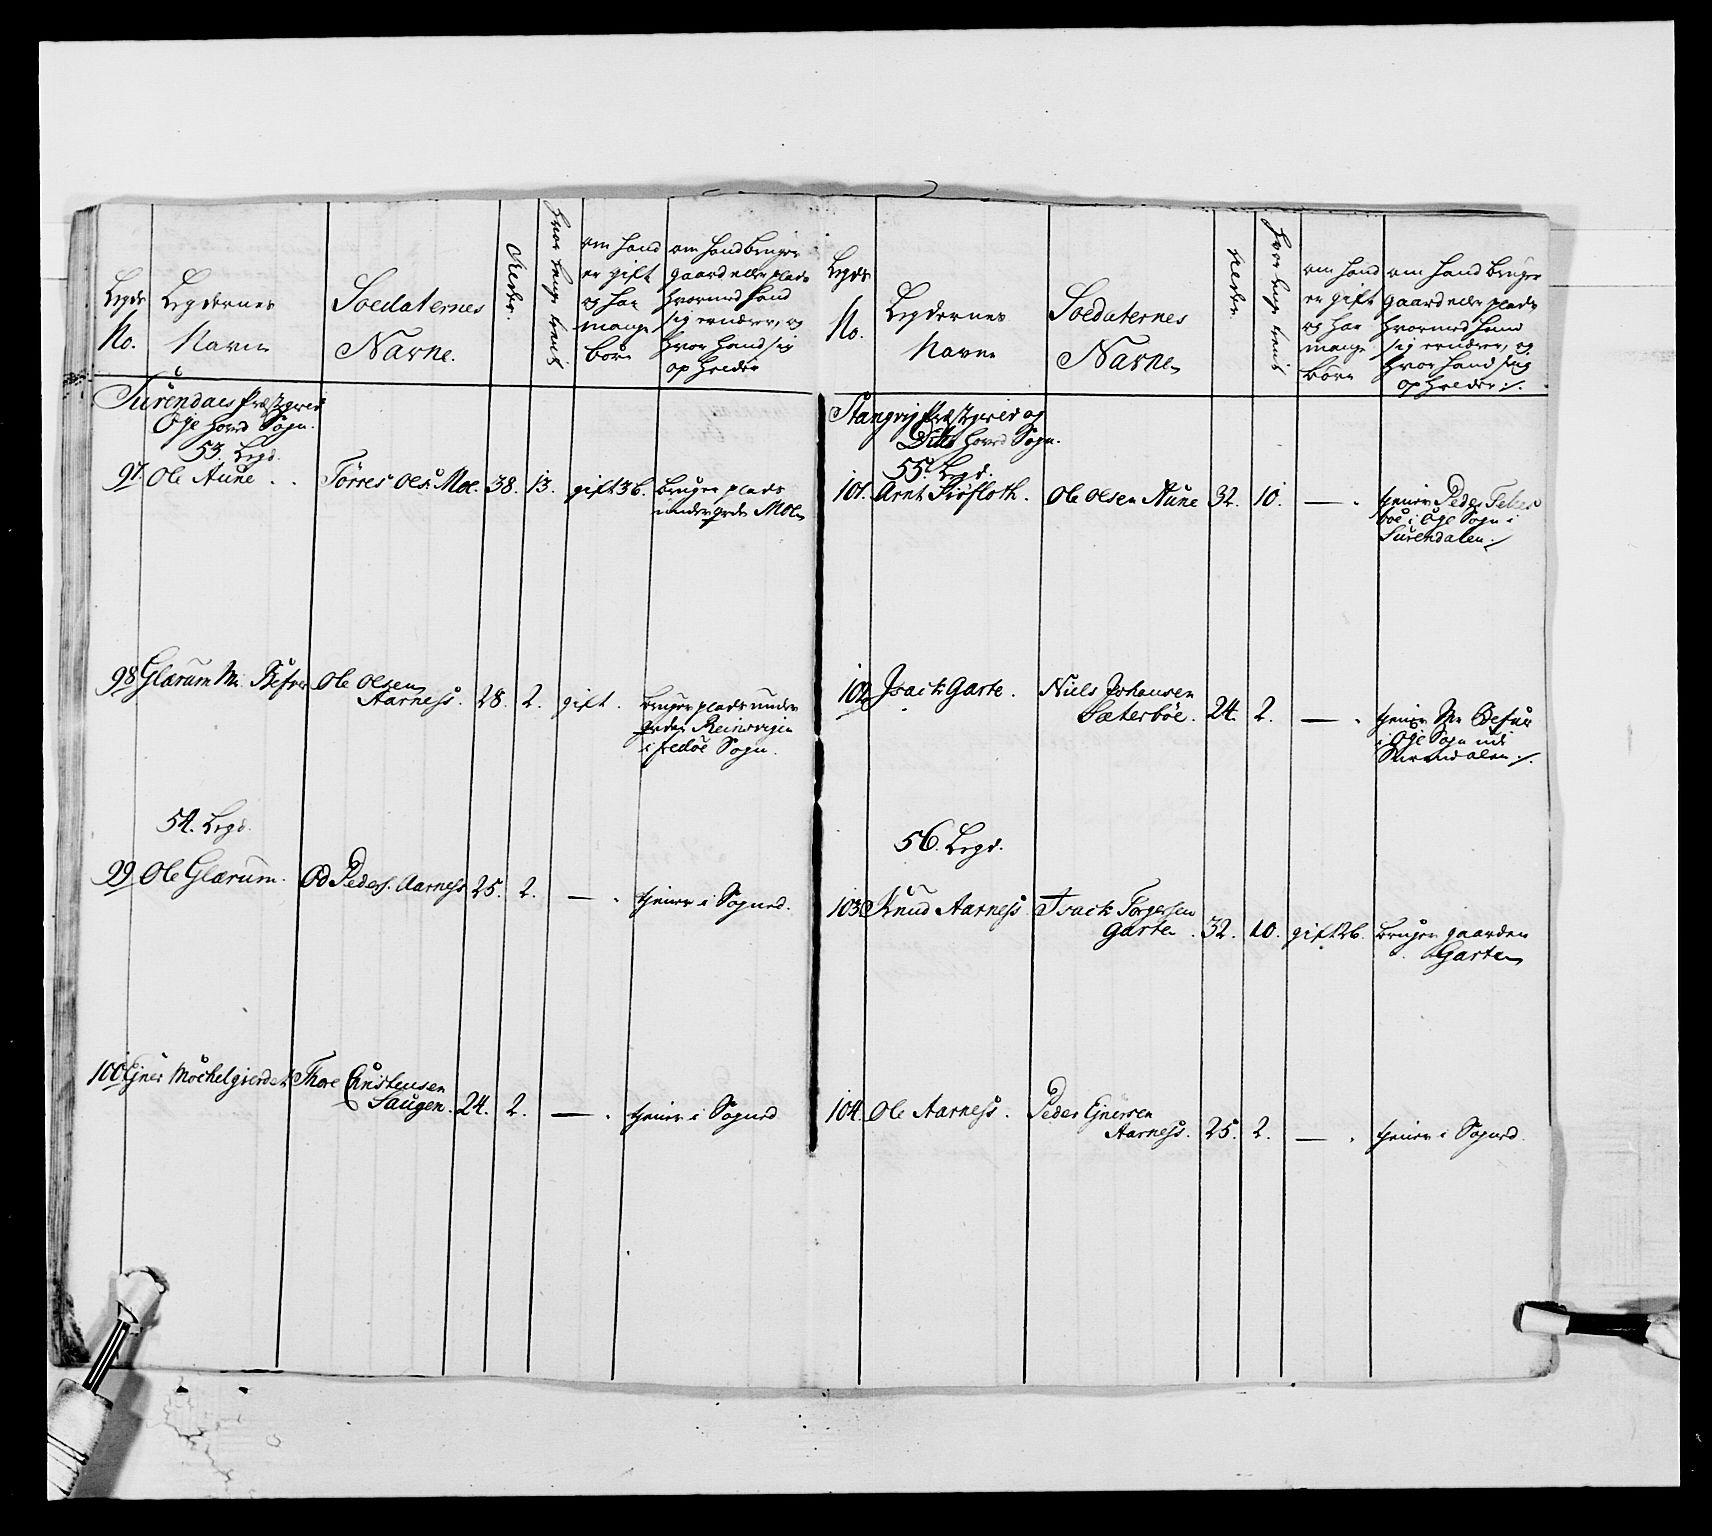 Legds
No.
Legdernes
Navne
Soldaternes
Navne.
Alder.
hvor lenge tient
om hand
er gift
og har
mange
børn
om hand bruger
gaard eller plads
hvormed hand
sig ernærer, og
hvor hand sig
opholder
Surendals Præstegield
Øye hoved Sogn.
53. Legd.
97. Ole Aune . . Torres Ols: Moe. 38. 13. gift 3 b. bruger plads
under grd: Moen
98 Glærum Mr. Bæfver Ole Olsen
Aarness. 28. 2. gift . bruger plads under
grden Reinsvigen
i fredøe Sogn.
54. Legd.
99 Ole Glærum. Od Peders. Aarness 25. 2. — . tiener i Sogned.
100 Ejner Mochelgierdet Thore Christensen
Saugen. 24. 2. — . tiener i Sogned
Legds
No.
Legdernes
Navne
Soldaternes
Navne
Alder
hvor lenge tient
om hand
er gift
og har
mange
børn
om hand bruger
gaard eller plads
hvormed hand
sig ernærer, og
hvor hand sig
opholder ./.
Stangvig Præstegield og
Ditto hoved Sogn.
55. Legd.
101. Arnt Siøfloth. Ole Olsen Aune 32. 10. — . tiener Peder Telles
boe i Øye Sogn i
Surendalen ./.
102 Isach Garte. Niels Johansen
Sæterbøe. 24. 2. — . tiener Mr Bæfver
i Øye Sogn udi
Surendalen ./.
56. Legd.
103 Knud Aarness Isach Torgersen
Garten . 32. 10. gift 2 b. bruger gaarden
Garten
104. Ole Aarness. Peder Ejnersen
Aarness. 25. 2. — . tiener i Sogned.